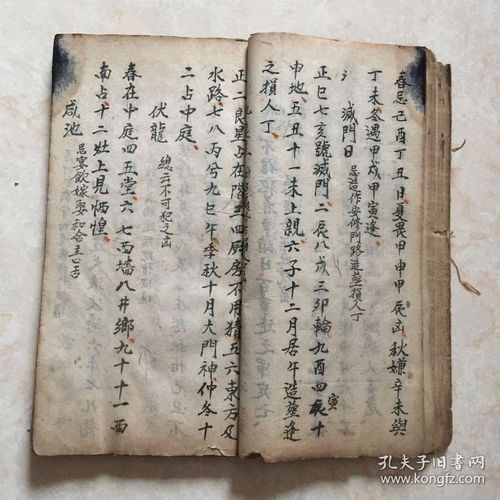 春忌己酉丁丑日夏畏甲申甲辰凶秋嫌辛未與
丁未冬遇甲戌甲寅逢
滅門日 忌造作安修門路造塟損人丁
正巳七亥號滅門二辰八戌三卯輪九酉四寅十
申地五丑十一未上親六子十二月居午造塟逢
之損人丁
正二良
水路七八丙兮九巳午季秋十月大門神仲冬十
二占中庭
伏龍 總云不可犯之凶
春在中庭四五堂六七西墻八井鄉九十十一西
南占十二灶上見炳煌
咸池 忌宴飲嫁娶和合主口舌
孔夫子旧书网
www.kongfz.com